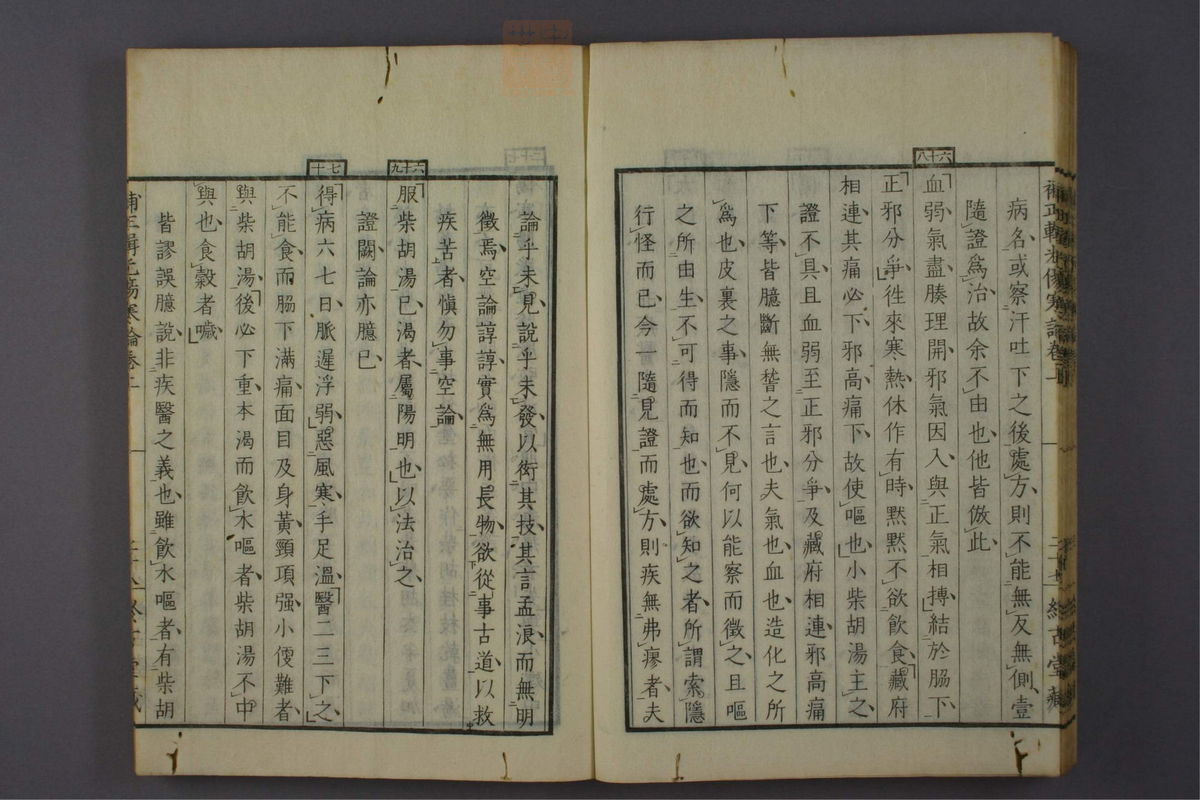 六十八
病名或察汗吐下之後處方則不能無反無側壹
隨證為治故余不由也他皆倣此
血弱氣盡腠理開邪氣因入與正氣相搏結於脇下
正邪分爭徃來寒熱休作有時默默不欲飲食藏府
相連其痛必下邪高痛下故使嘔也小柴胡湯主之
證不具且血弱至正邪分爭及藏府相連邪高痛
下等皆臆斷無稽之言也夫氣也血也造化之所
為也皮裏之事隱而不見何以能察而徵之且嘔
之所由生不可得而知也而欲知之者所謂索隱
行怪而已今一隨見證而處方則疾無弗瘳者夫
六十九
七十
論乎未見說乎未發以衒其技其言孟浪而無明
徵焉空論諄諄實為無用長物欲從事古道以救
疾苦者愼勿事空論
服柴胡湯已渴者屬陽明也以法治之
證闕論亦臆已
得病六七日脈遲浮弱惡風寒手足溫醫二三下之
不能食而脇下滿痛面目及身黃頸項强小便難者
與柴胡湯後必下重本渴而飮水嘔者柴胡湯不中
與也食穀者噦
皆謬誤臆說非疾醫之義也雖飮水嘔者有柴胡